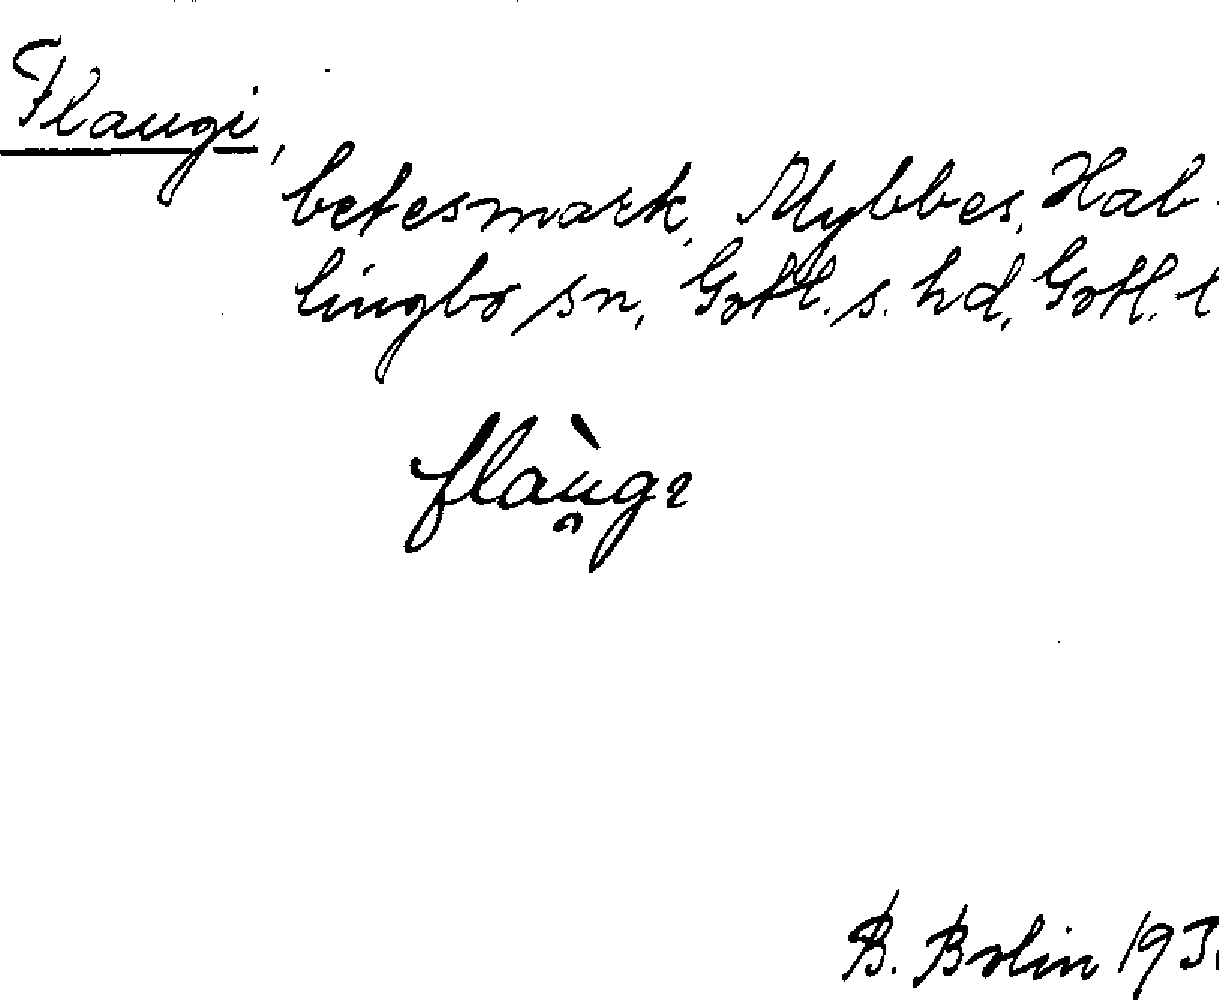 Flaugi,
betesmark, Mybbes, Hab-
lingbo sn, Gotl. s. hd, Gotl. l
flàu̯gɩ
B. Bolin 193